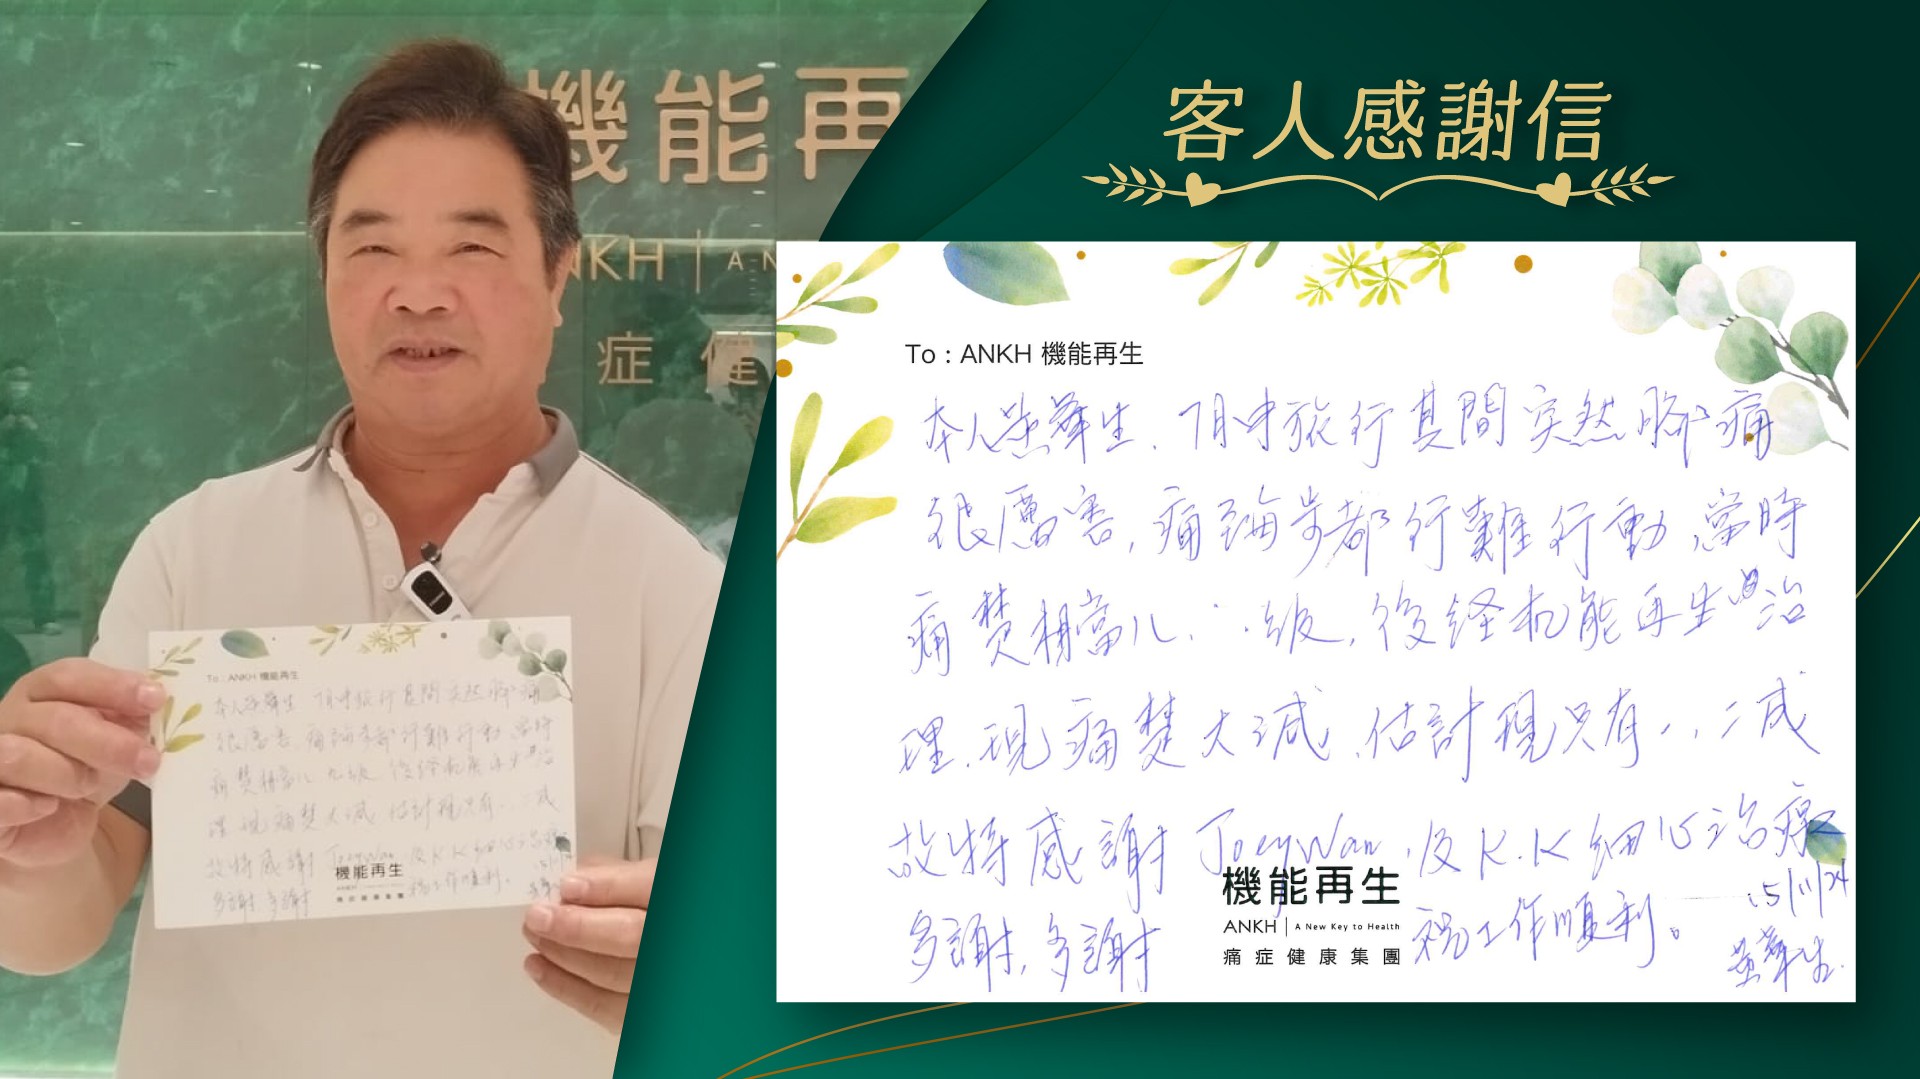 機能再
ANKH | A N
症 健
客人感謝信
To : ANKH 機能再生
本人黃華生. 7月中旅行其間突然腳痛
很厲害, 痛到步都行難行動, 當時
痛楚相當八. 級, 後經机能再生治
理. 現痛楚大減, 估計現只有一, 二成
故特感謝 Joey Wan, 及 K.K 細心治療
多謝, 多謝 祝工作順利。
15/11/24
黃華生
機能再生
ANKH | A New Key to Health
痛症健康集團